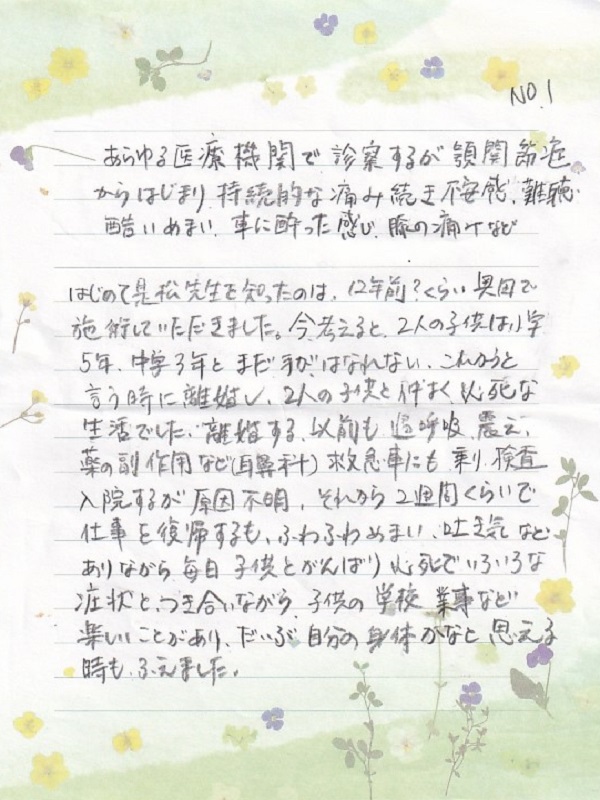 NO.1
あらゆる医療機関で診察するが顎関節症
からはじまり、持続的な痛み続き不安感、難聴
酷いめまい、車に酔った感じ、瞼の痛みなど
はじめて是松先生を知ったのは、12年前?くらい奥田で
施術していただきました。今考えると、2人の子供は小学
5年、中学3年とまだ手がはなれない、これからと
言う時に離婚し、2人の子供と仲よく必死な
生活でした。離婚する、以前も過呼吸、震え、
薬の副作用など(耳鼻科)救急車にも乗り、検査
入院するが原因不明、それから2週間くらいで
仕事を復帰するも、ふわふわめまい、吐き気など
ありながら毎日子供とがんばり必死でいろいろな
症状と、つき合いながら、子供の学校業事など
楽しいことがあり、だいぶ自分の身体かなと思える
時も、ふえました。